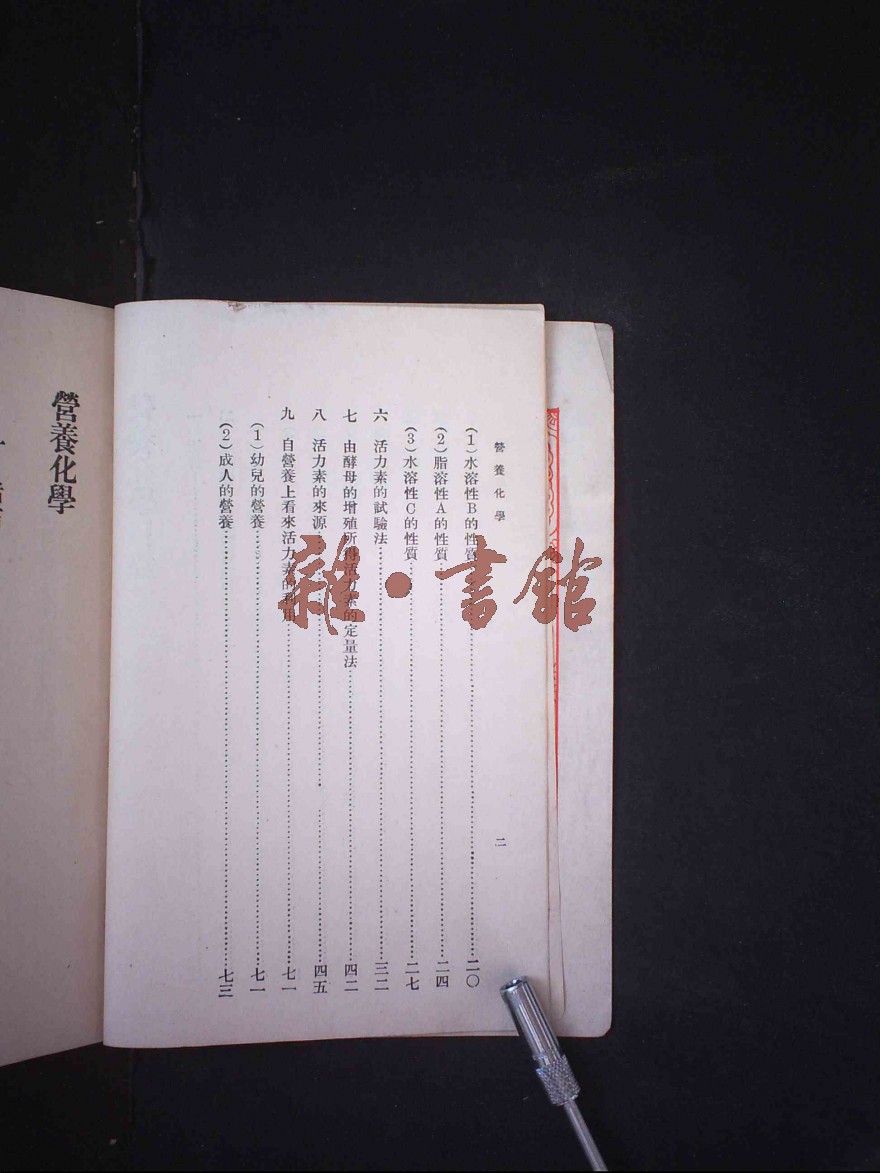 營養化學
二
(1)水溶性B的性質……二〇
(2)脂溶性A的性質……二四
(3)水溶性C的性質……二七
六 活力素的試驗法……三二
七 由酵母的增殖所得活力素的定量法……四二
八 活力素的來源……四五
九 自營養上看來活力素的利用……七一
(1)幼兒的營養……七一
(2)成人的營養……七三
營養化學
雜·書館